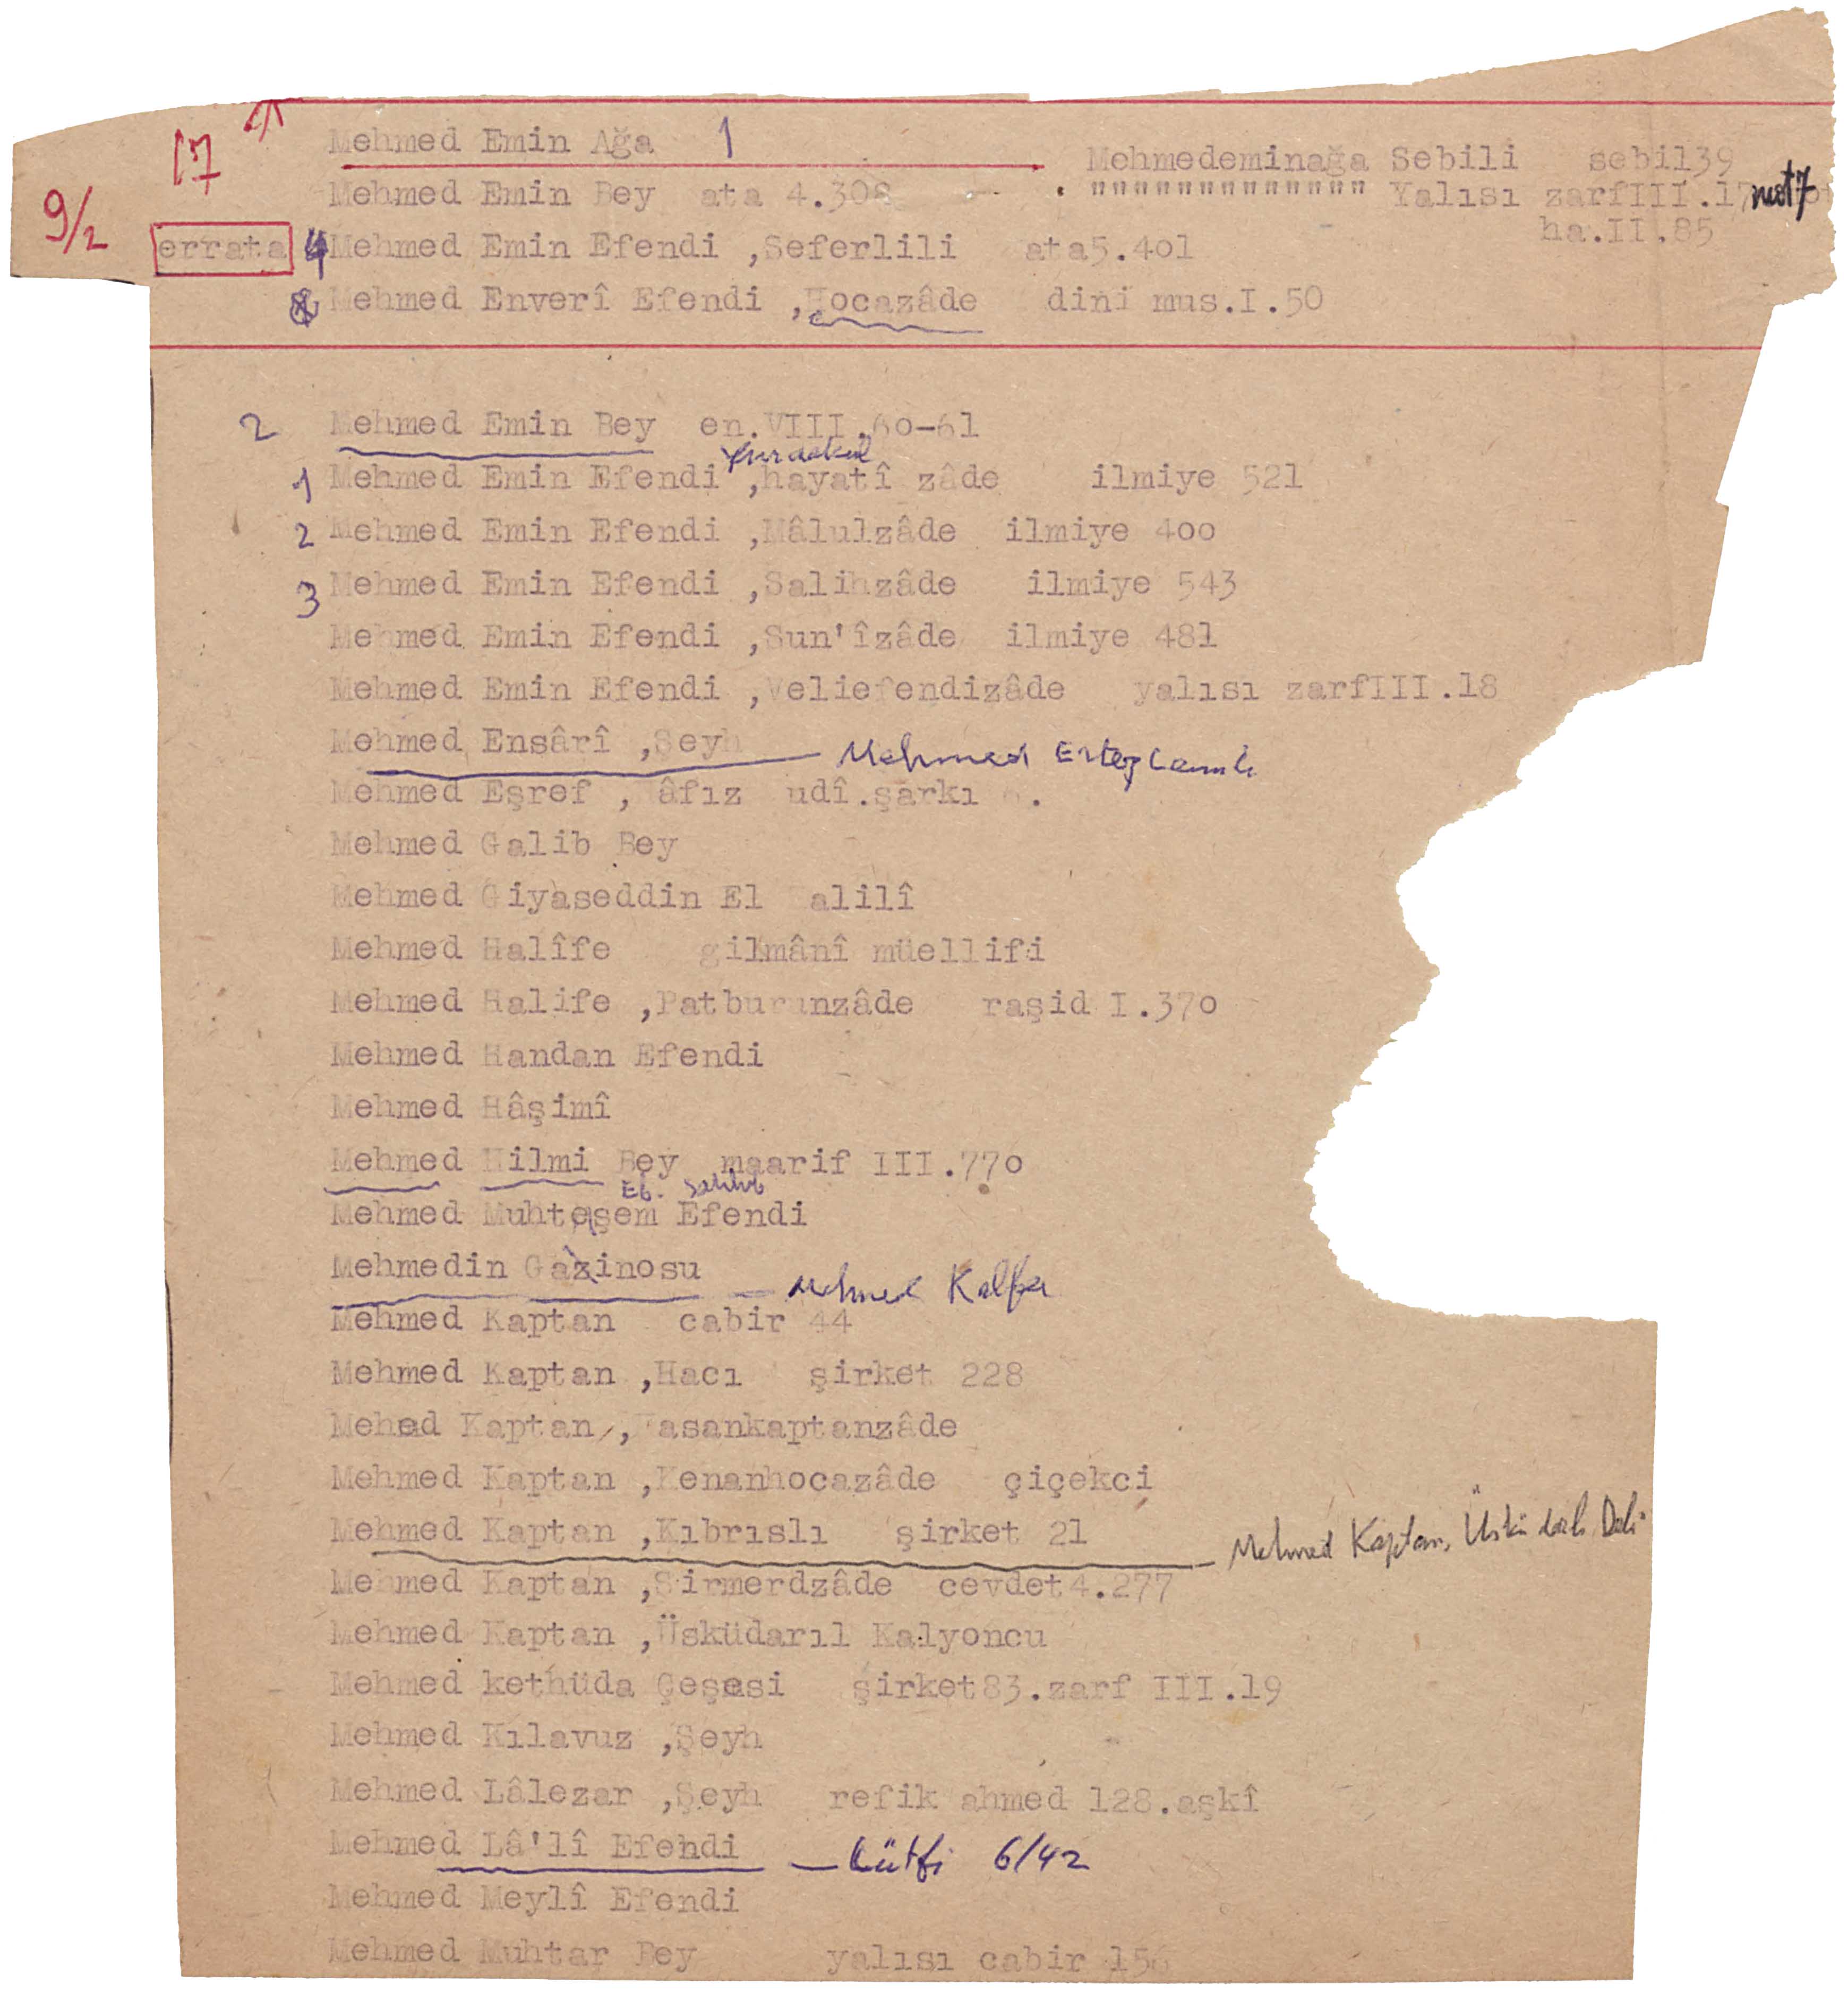 17
Mehmed Emin Ağa 1
Mehmedeminağa Sebili sebil39
Mehmed Emin Bey ata 4.308
"""""""""""""" Yalısı zarfIII.17 not 7
9/2
ha.II.85
errata 4 Mehmed Emin Efendi ,Seferlili ata5.4o1
Mehmed Enverî Efendi ,Hocazâde dinî mus.I.50
2 Mehmed Emin Bey en.VIII.6o-61
Yurdakul
1 Mehmed Emin Efendi ,hayatî zâde ilmiye 521
2 Mehmed Emin Efendi ,Mâlulzâde ilmiye 4oo
3 Mehmed Emin Efendi ,Salihzâde ilmiye 543
Mehmed Emin Efendi ,Sun'îzâde ilmiye 481
Mehmed Emin Efendi ,Veliefendizâde yalısı zarfIII.18
Mehmed Ensârî ,Şeyh — Mehmed
Mehmed Eşref , âfız udî.şarkı
Mehmed Galib Bey
Mehmed Giyaseddin El alilî
Mehmed Halîfe gilmânî müellifi
Mehmed Halife ,Patburunzâde raşid I.37o
Mehmed Handan Efendi
Mehmed Hâşimî
Mehmed Hilmi Bey maarif III.77o
Eb. Sahib
Mehmed Muhteşem Efendi
Mehmedin Gazinosu — Mehmed Kalfa
Mehmed Kaptan cabir 44
Mehmed Kaptan ,Hacı şirket 228
Mehed Kaptan , asankaptanzâde
Mehmed Kaptan ,Kenanhocazâde çiçekci
Mehmed Kaptan ,Kıbrıslı şirket 21 — Mehmed Kaptan, Üsküdarlı Deli
Mehmed Kaptan ,Sirmerdzâde cevdet4.277
Mehmed Kaptan ,Üsküdarıl Kalyoncu
Mehmed kethüda Çeşesi şirket83.zarf III.19
Mehmed Kılavuz ,Şeyh
Mehmed Lâlezar ,Şeyh refik ahmed 128.aşkî
Mehmed Lâ'lî Efendi — Lütfi 6/42
Mehmed Meylî Efendi
Mehmed Muhtar Bey yalısı cabir 156